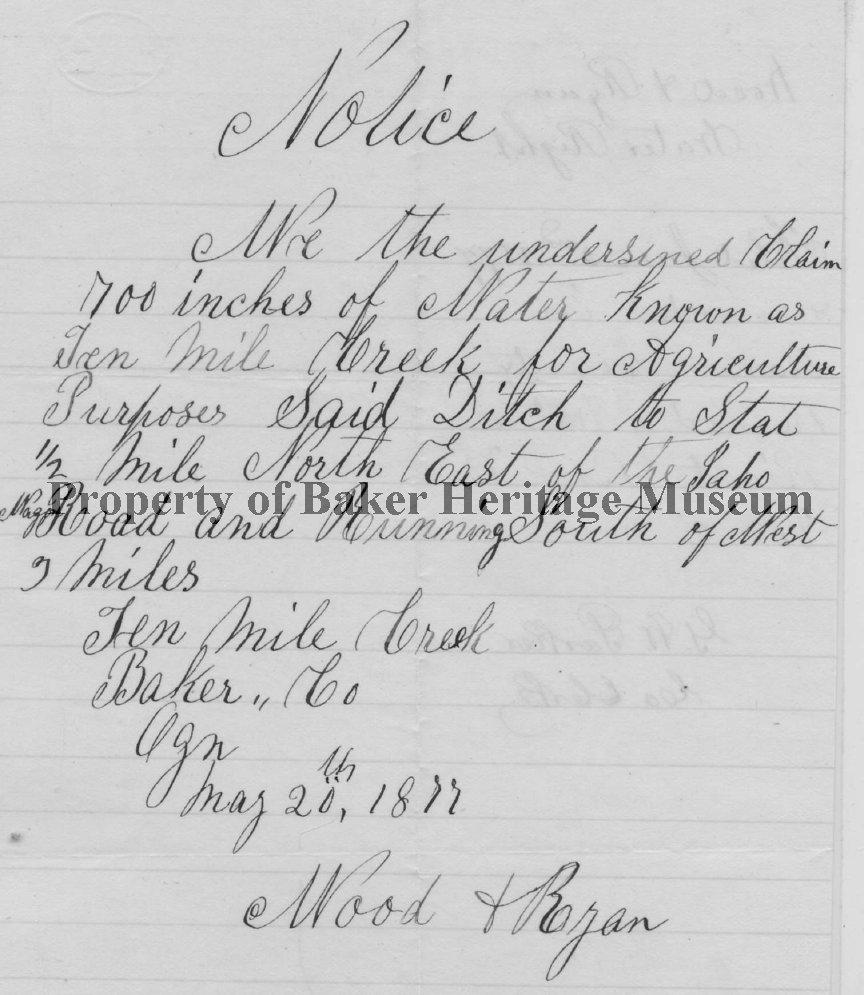 Notice
We the undersined Claim
700 inches of Water Known as
Ten Mile Creek for Agriculture
Purposes Said Ditch to Stat
1/2 Mile North East of the Idaho
Property of Baker Heritage Museum
Road and Running South of West
3 Miles
Ten Mile Creek
Baker,, Co
Ogn
May 20th, 1877
Wood & Ryan